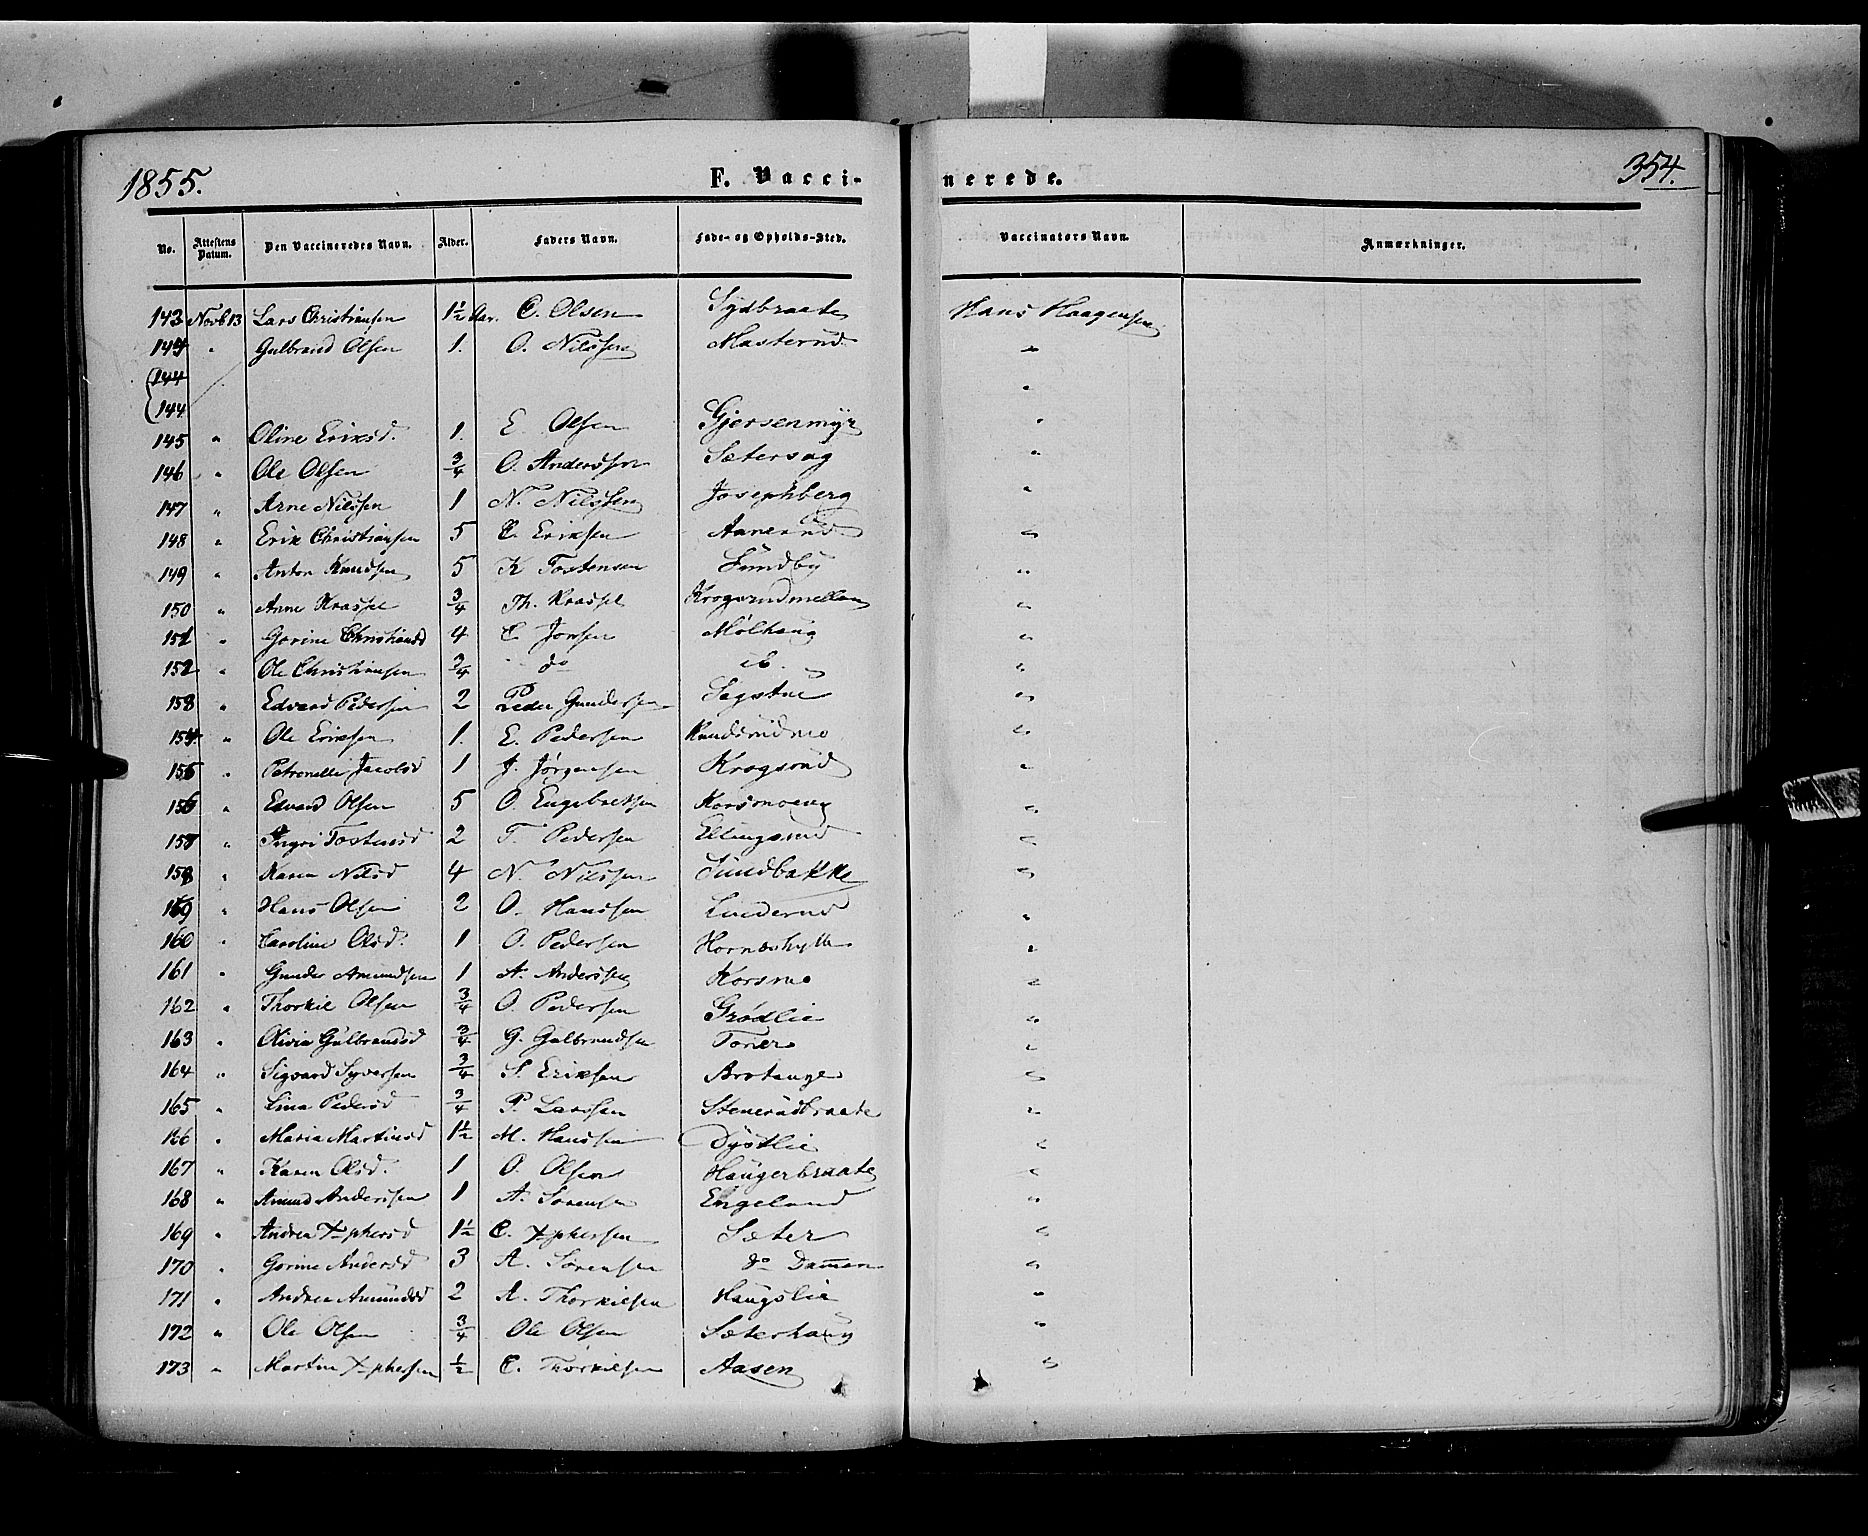 1855.
F. Vacci-
nerede.
354.
No. Attestens Datum. Den Vaccineredes Navn. Alder. Faders Navn. Føde- og Opholds-Sted. Vaccinators Navn. Anmærkninger.
143 Novb 13 Lars Christiansen 1½ Aar. C. Olsen Sydbraate Hans Haagensen
144 " Gulbrand Olsen 1. O. Nilssen Masterud "
144 "
144
145 " Oline Eriksd. 1. E. Olsen Gjersenmyr "
146 " Ole Olsen ¾ O. Anderssen Sætersag "
147 " Arne Nilssen 1 N. Nilssen Josephberg "
148 " Erik Christiansen 5 C. Eriksen Aanerud "
149 " Anton Knudsen 5 K Tostensen Sundby "
150 " Anne Kraspel ¾ Th. Kraspel Krogsrudmellom "
151 " Gorine Christiansd 4 C Jonsen Mølhaug "
152 " Ole Christiansen ¾ do ib. "
153 " Edvard Pedersen 2 Peder Gundersen Sagstue "
154. " Ole Eriksen 1. E. Pedersen Knudsrudmo "
155 " Petronelle Jacobsd 1 J. Jørgensen Krogsrud "
156 " Edvard Olsen 5 O. Engebretsen Korsmoeng "
157 " Ingri Tostensd 2 T. Pedersen Ellingsrud "
158 " Karen Nilsd 4 N. Nilssen Sundbakke "
159 " Hans Olsen 2 O. Hanssen Linderud "
160 " Caroline Olsd. 1 O. Pedersen Hornæshytte "
161 " Gunder Amundsen 1 A. Anderssen Korsmo "
162 " Thorkil Olsen ¾ O. Pedersen Grødlie "
163 " Olivia Gulbrandsd ¾ G. Gulbrandsen Toner "
164 " Sigvard Syversen ¾ S. Eriksen Brotange "
165 " Lina Pedersd ¾ P. Larssen Stenerudbraate "
166 " Maria Martinsd 1½ M. Hanssen Dystlie "
167 " Karen Olsd. 1 O. Olsen Haugerbraate "
168 " Amund Anderssen 1 A. Sørensen Engelund "
169 " Andrea Xphersd 1½ C. Xphersen Sæter "
170 " Gorine Andersd 3 A. Sørensen do Dammen "
171 " Andrea Amundsd 2 A. Thorkilsen Haugslie "
172 " Ole Olsen ¾ Ole Olsen Sæterhaug "
173 " Martin Xphersen ½ C. Thorkilsen Aasen "